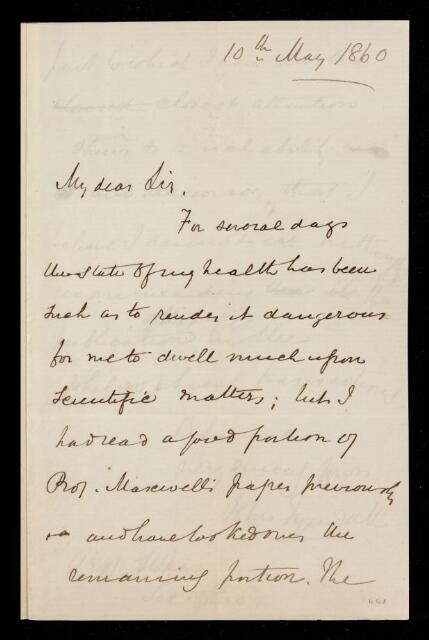 10th May 1860
My dear Sir.
For several days
the state of my health has been
such as to render it dangerous
for me to dwell much upon
Scientific matters; but I
had read a good portion of
Prof. Maxwell's paper previously
and have looked over the
remaining portion. The